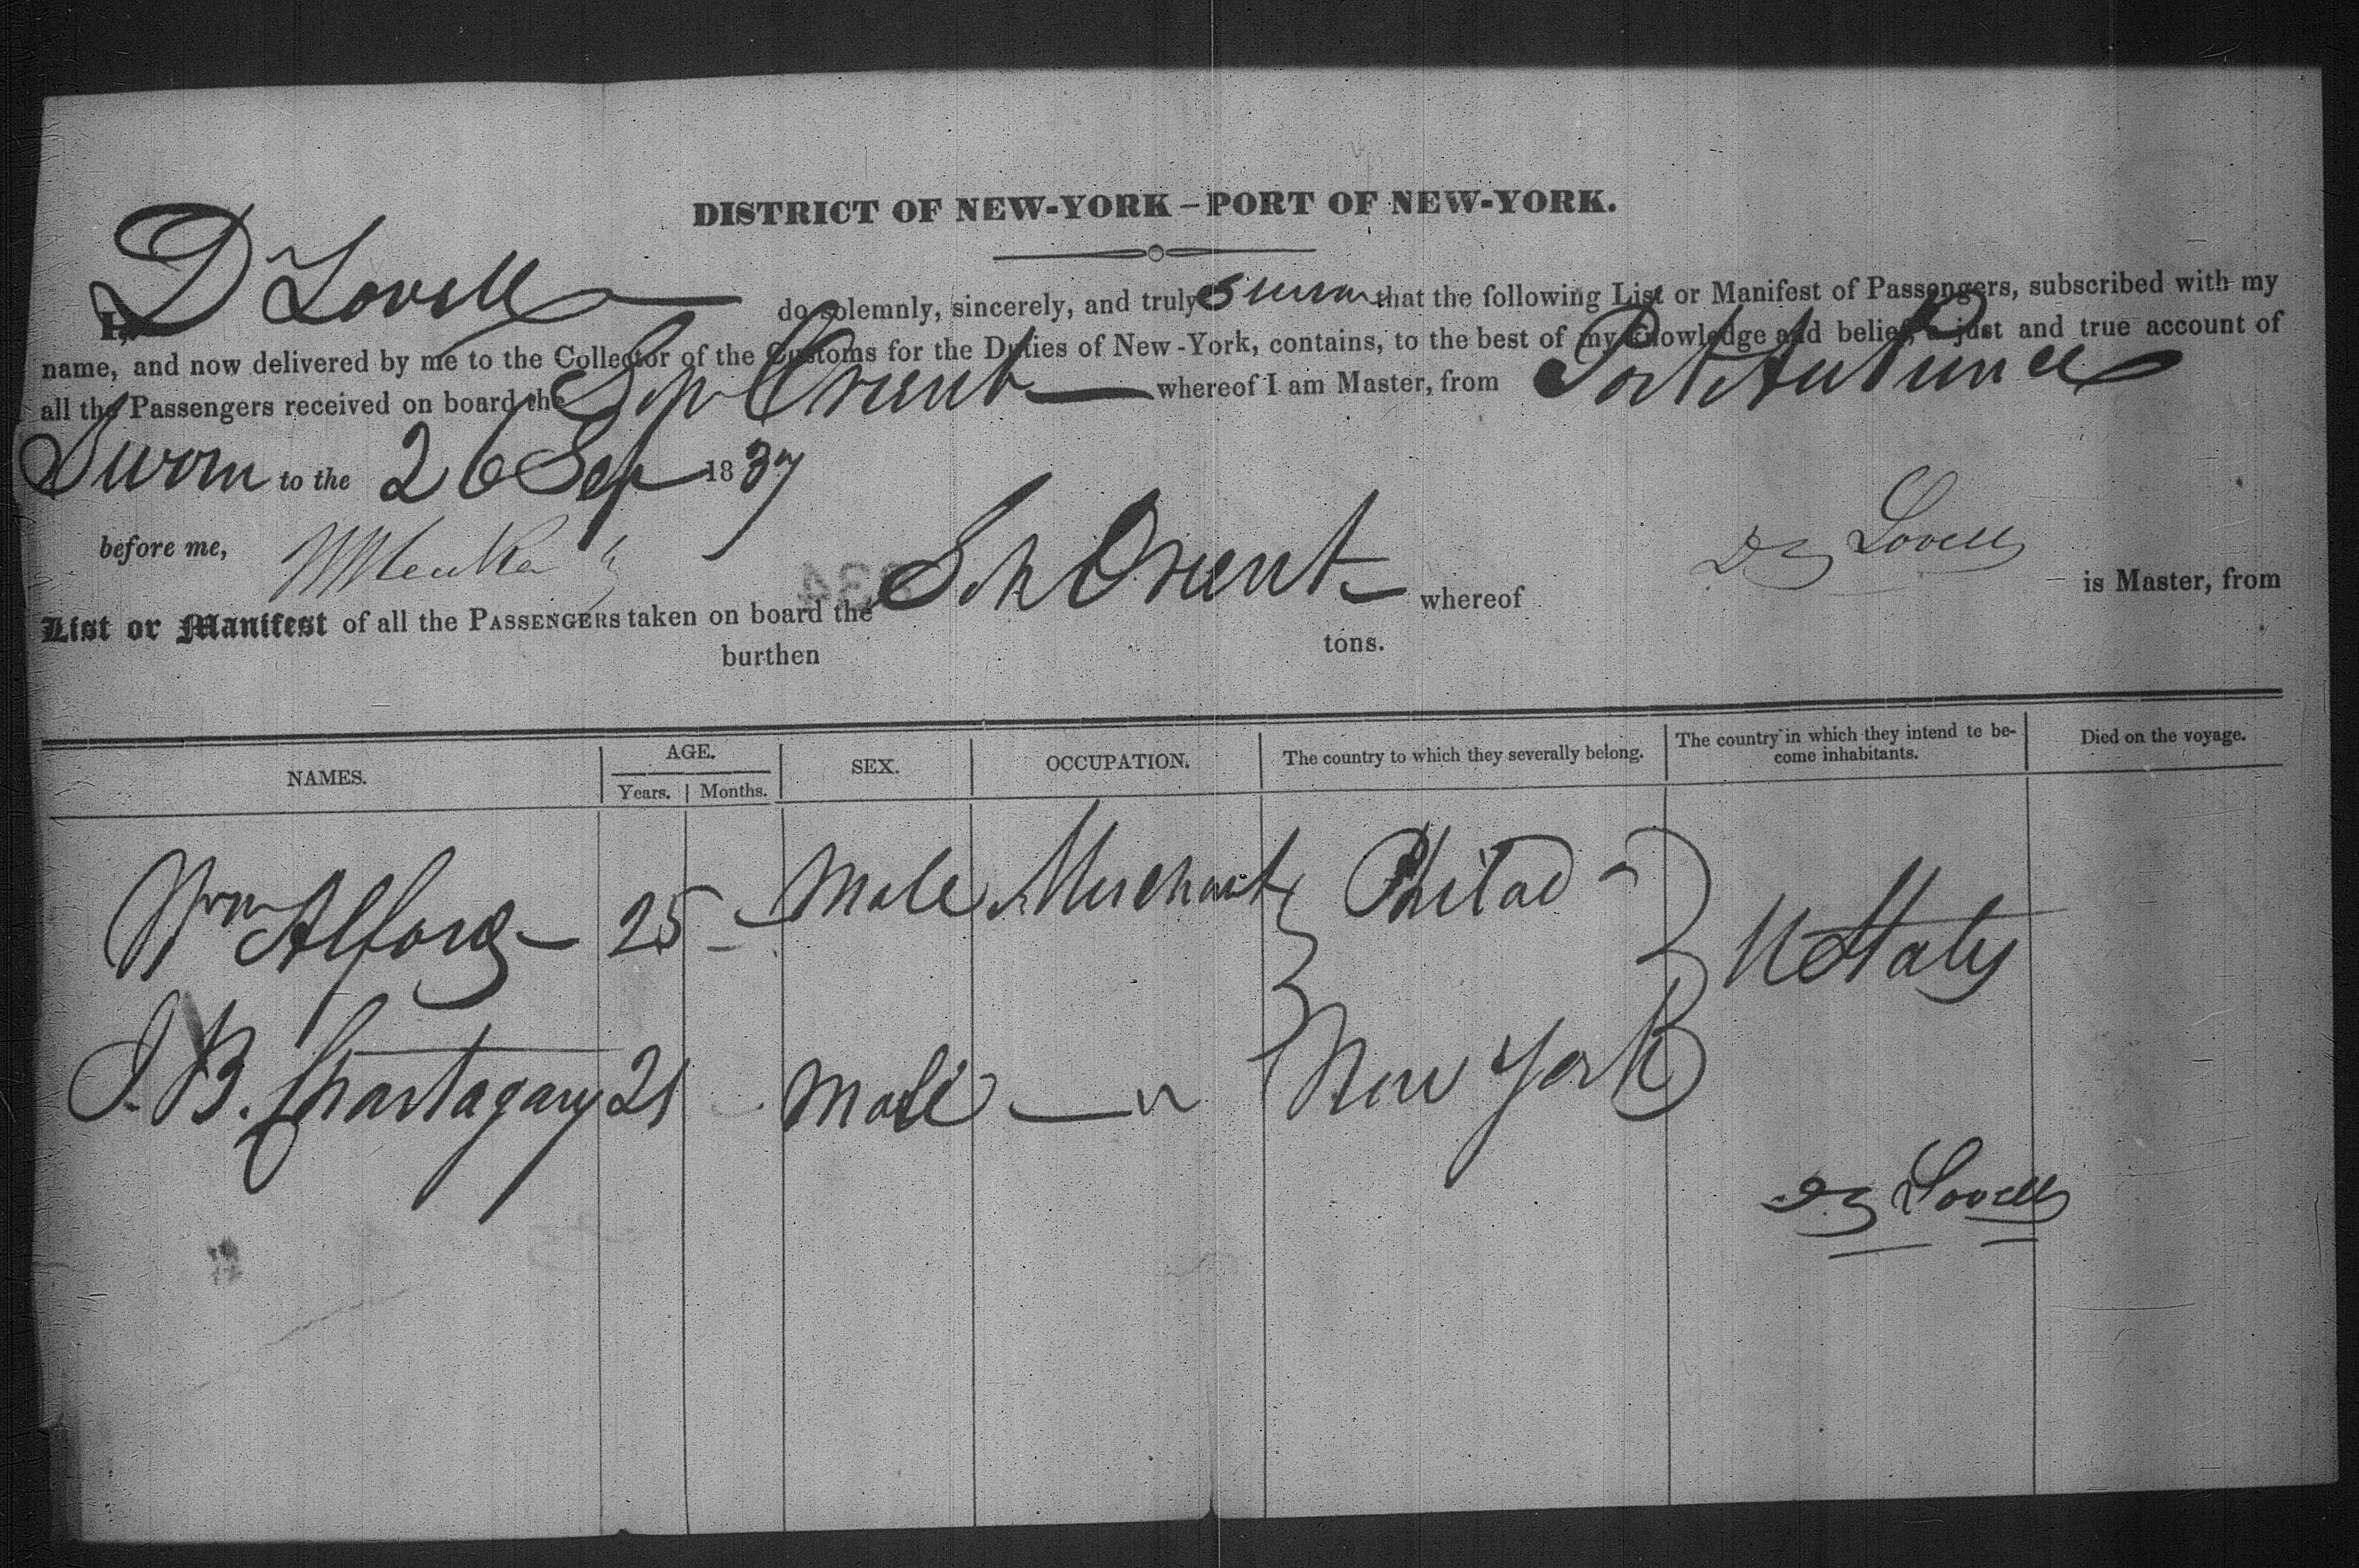 DISTRICT OF NEW-YORK – PORT OF NEW-YORK.
I, D Lovell do solemnly, sincerely, and truly swear that the following List or Manifest of Passengers, subscribed with my
name, and now delivered by me to the Collector of the Customs for the Duties of New-York, contains, to the best of my knowledge and belief, a just and true account of
all the Passengers received on board the Sch Orient whereof I am Master, from Port Au Prince
Sworn to the 26 Sep 1837
before me,
D Lovell
List or Manifest of all the PASSENGERS taken on board the Sch Orient whereof is Master, from
burthen tons.
NAMES. AGE. Years. Months. SEX. OCCUPATION. The country to which they severally belong. The country in which they intend to become inhabitants. Died on the voyage.
Wm Alford 25 - Male Merchant Philad " U States
J. B. 21 Male " New York
D Lovell